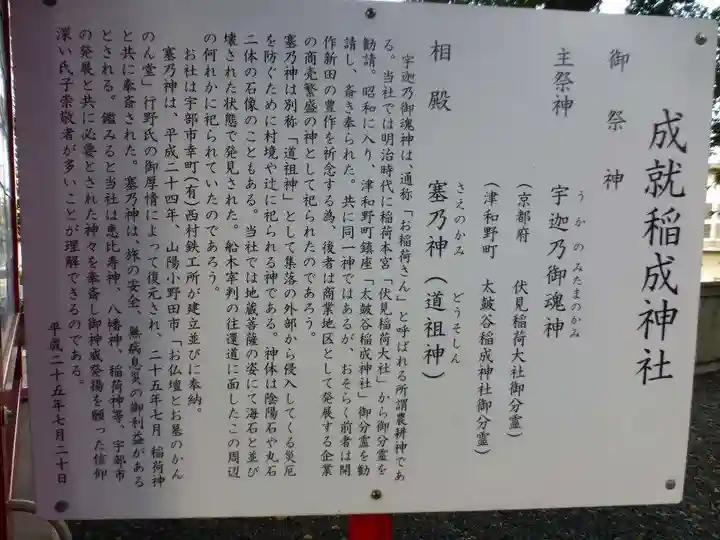 成就稲成神社
御祭神
主祭神　宇迦乃御魂神
うかのみたまのかみ
（京都府　伏見稲荷大社御分霊）
（津和野町　太皷谷稲成神社御分霊）
相殿　塞乃神（道祖神）
さえのかみ　どうそしん
宇迦乃御魂神は、通称「お稲荷さん」と呼ばれる所謂農耕神であ
る。当社では明治時代に稲荷本宮「伏見稲荷大社」から御分霊を
勧請。昭和に入り、津和野町鎮座「太皷谷稲成神社」御分霊を勧
請し、斎き奉られた。共に同一神ではあるが、おそらく前者は開
作新田の豊作を祈念する為、後者は商業地区として発展する企業
の商売繁盛の神として祀られたのであろう。
塞乃神は別称「道祖神」として集落の外部から侵入してくる災厄
を防ぐために村境や辻に祀られる神である。神体は陰陽石や丸石
二体の石像のこともある。当社では地蔵菩薩の姿にて海石と並び
壊された状態で発見された。船木宰判の往還道に面したこの周辺
の何れかに祀られていたのであろう。
お社は宇部市幸町（有）西村鉄工所が建立並びに奉納。
塞乃神は、平成二十四年、山陽小野田市「お仏壇とお墓のかん
のん堂」行野氏の御厚情によって復元され、二十五年七月稲荷神
と共に奉斎された。塞乃神は、旅の安全、無病息災の御利益がある
とされる。鑑みると当社は恵比寿神、八幡神、稲荷神等、宇部市
の発展と共に必要とされた神々を奉斎し御神威発揚を願った信仰
深い氏子崇敬者が多いことが理解できるのである。
平成二十五年七月二十日